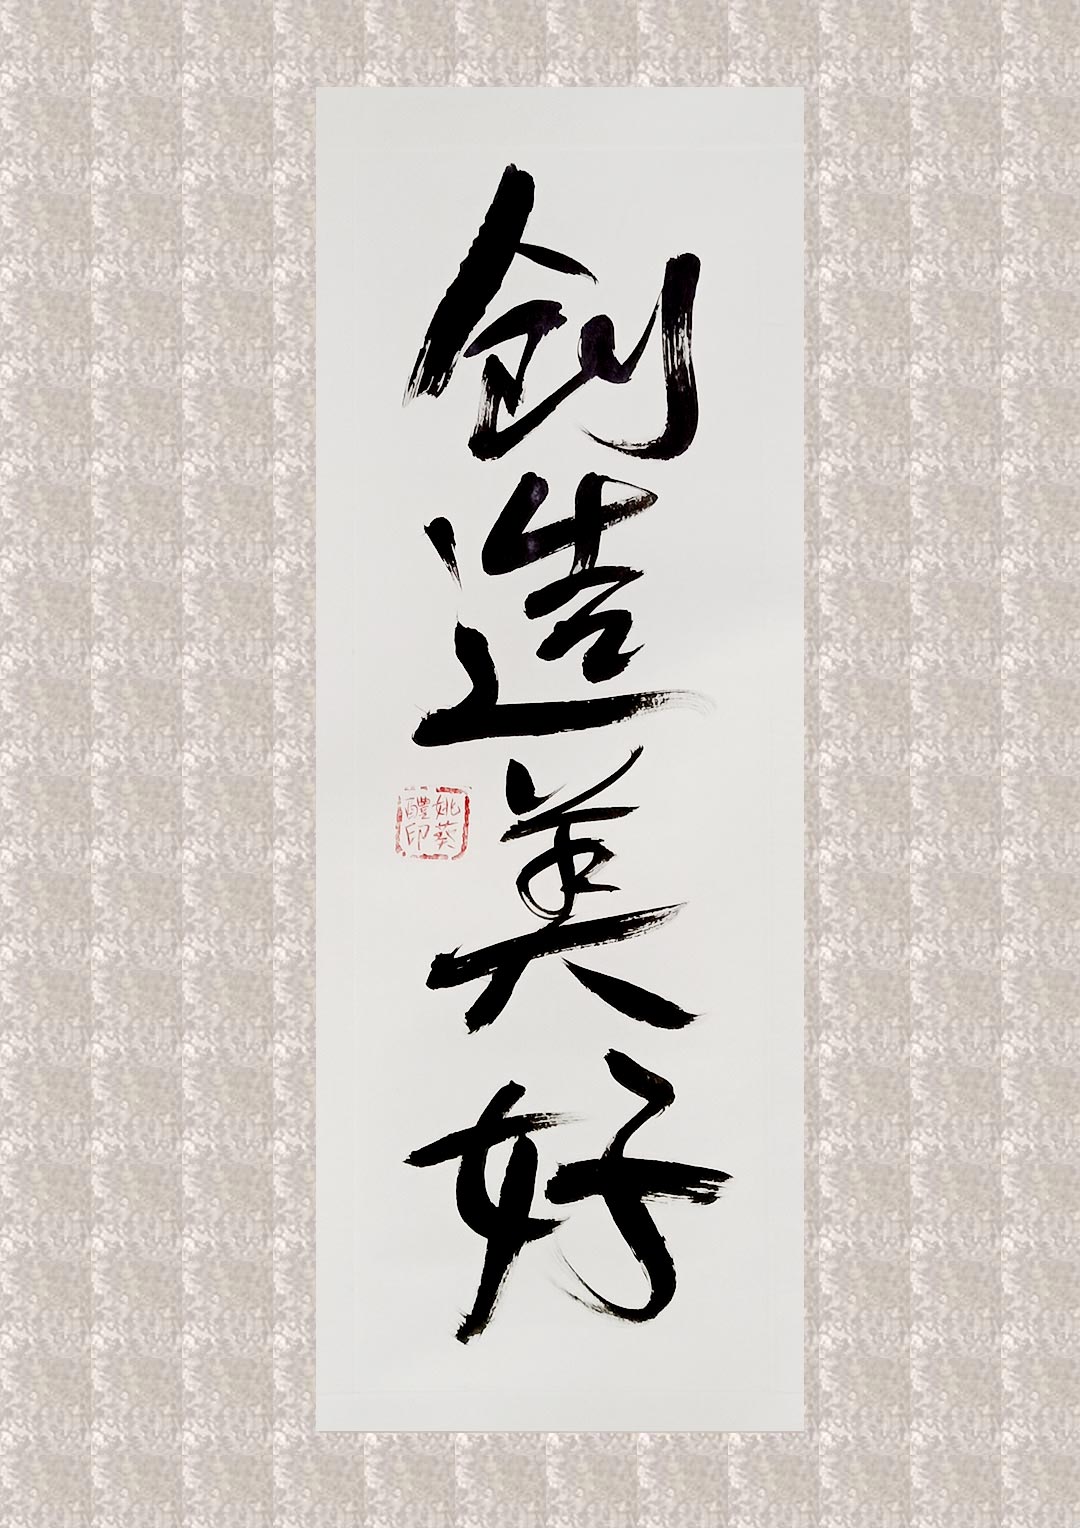 创造美好
姚葵醴印